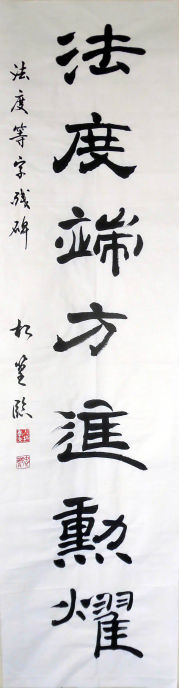 法度端方進勳耀
法度等字殘碑